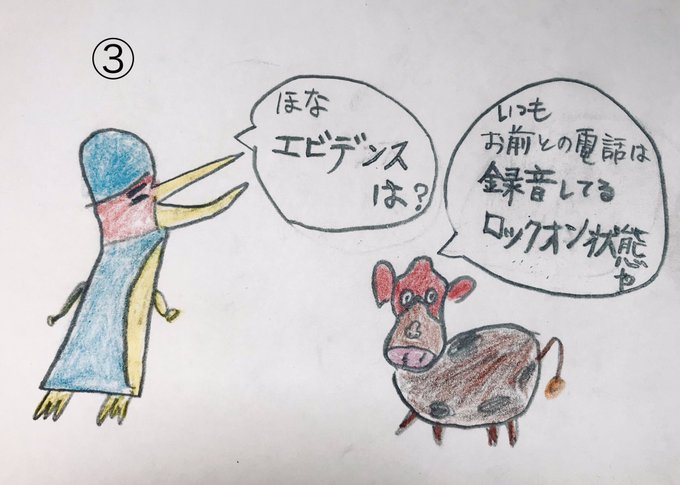 ③
ほな
エビデンス
は？
いつも
お前との電話は
録音してる
ロックオン状態
や